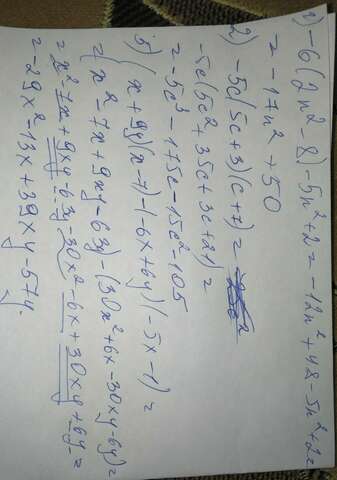 1) -6(2n²-8)-5n²+2=-12n²+48-5n²+2=
=-17n²+50
2) -5c(5c+3)(c+7)=
-5c(5c²+35c+3c+21)=
=-5c³-175c-15c²-105
5) (x+9y)(x-7)-(-6x+6y)(-5x-1)=
=(x²-7x+9xy-63y)-(30x²+6x-30xy-6y)=
=x²-7x+9xy-63y-30x²-6x+30xy+6y=
=-29x²-13x+39xy-57y.